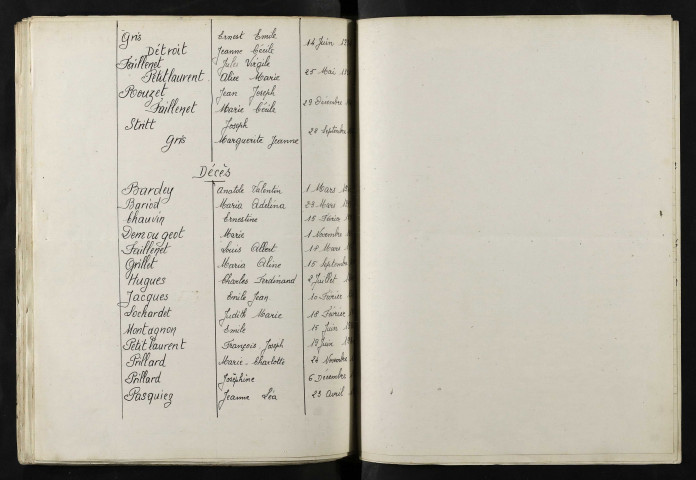 Gris Ernest Emile 14 Juin
Détroit Jeanne Cécile
Faillenet Jules Virgile
Petitlaurent Alice Marie 25 Mai
Rouzet Jean Joseph
Faillenet Marie Cécile 29 Décembre
Stritt Joseph
Gris Marguerite Jeanne 28 Septembre
Décès
Bardey Anatole Valentin 1 Mars
Bariod Maria Adelina 23 Mars
Chauvin Ernestine 15 Février
Demougeot Marie 1 Novembre
Faillenet Louis Albert 18 Mars
Grillet Maria Aline 15 Septembre
Hugues Charles Ferdinand 2 Juillet
Jacques Emile Jean 10 Février
Lochardet Judith Marie 18 Février
Montagnon Emile 15 Juin
Petitlaurent François Joseph 19 Juin
Prillard Marie-Charlotte 24 Novembre
Prillard Joséphine 6 Décembre
Pasquiez Jeanne Léa 23 Avril